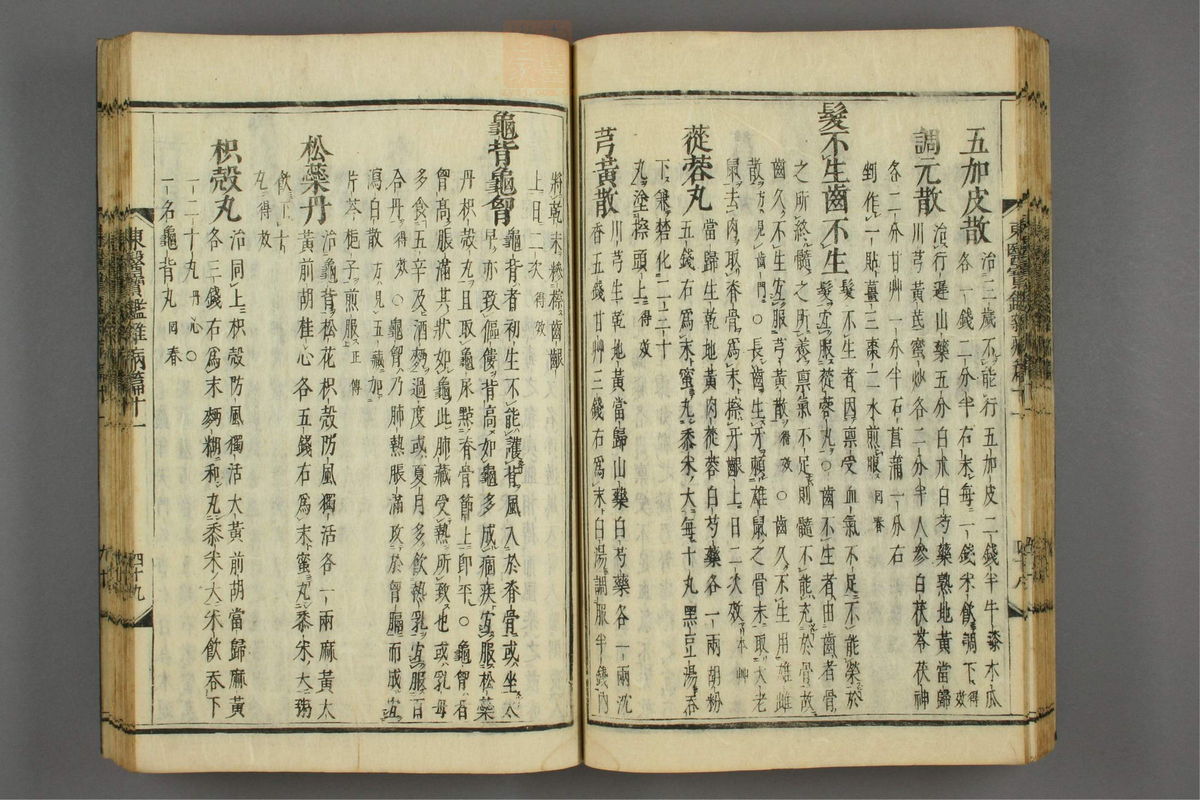 五加皮散治三歲不能行五加皮二錢半牛膝木瓜
各一錢二分半右末每一錢米飮調下得效
調元散治行遲山藥五分白朮白芍藥熟地黃當歸
川芎黃芪蜜炒各二分半人參白茯苓茯神
各二分甘艸一分半石菖蒲一分右
剉作一貼薑三棗二水煎服回春
髮不生齒不生髮不生者因禀受血氣不足不能榮於
髮宜服蓯蓉丸○齒不生者由齒者骨
之所終髓之所養禀氣不足則髓不能充於骨故
齒久不生宜服芎黃散得效○齒久不生用雄雌
散方見齒門○長齒生牙賴雄鼠之骨末取大老
鼠去肉取脊骨爲末擦牙齦上日二次效本艸
蓯蓉丸當歸生乾地黃肉蓯蓉白芍藥各一兩胡粉
五錢右爲末蜜丸黍米大每十丸黑豆湯吞
下兼磨化一二三十
丸塗擦頭上得效
芎黃散川芎生乾地黃當歸山藥白芍藥各一兩沉
香五錢甘艸三錢右爲末白湯調服半錢仍
將乾末糝擦齒齦
上日二次得效
龜背龜胷龜背者初生不能護背風入於脊骨或坐太
早亦致傴僂背高如龜多成痼疾宜服松蘂
丹枳殼丸且取龜尿點脊骨節上卽平○龜胷者
胷高脹滿其狀如龜此肺藏受熱所致也或乳母
多食五辛及酒麪過度或夏月多飮熱乳宜服百
合丹得效○龜胷乃肺熱脹滿攻於胷膈而成宜
瀉白散方見五藏加
片芩梔子煎服正傳
松蘂丹治龜背松花枳殼防風獨活各一兩麻黃大
黃前胡桂心各五錢右爲末蜜丸黍米大粥
飮下十
丸得效
枳殼丸治同上枳殼防風獨活大黃前胡當歸麻黃
各三錢右爲末麪糊和丸黍米大米飮呑下
一二十丸丹心○
一名龜背丸回春
東醫寶鑑雜病篇十一
四十九